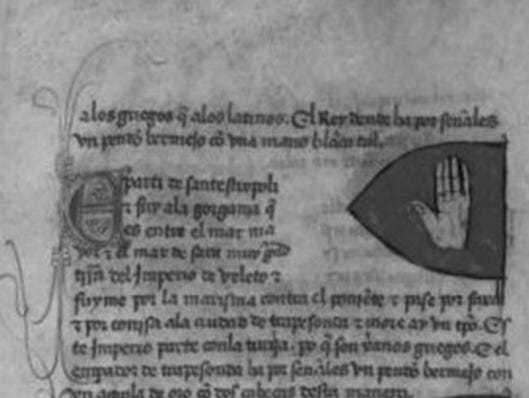 alos griegos q̃ alos latinos. El Rey dende ha por señales
vn pendõ bermejo cõ vna mano blãca tal.
Parti de santestropoli
⁊ fuy ala gorgania q̃
es entre el mar ma
yor ⁊ el mar de sara muy grãd
trr̃a del Imperio de vxleto ⁊
fuyme por la marisma contra el poniẽte ⁊ pase por
⁊ por corisa ala ciudad de trapesonda ⁊ more ay vn tpõ. Es
te Imperio parte conla turqia. po q̃ son griegos. E el
enpador de trapesonda ha por señales vn pendõ bermejo con
vn aguila de oro cõ dos cabeças desta manera.